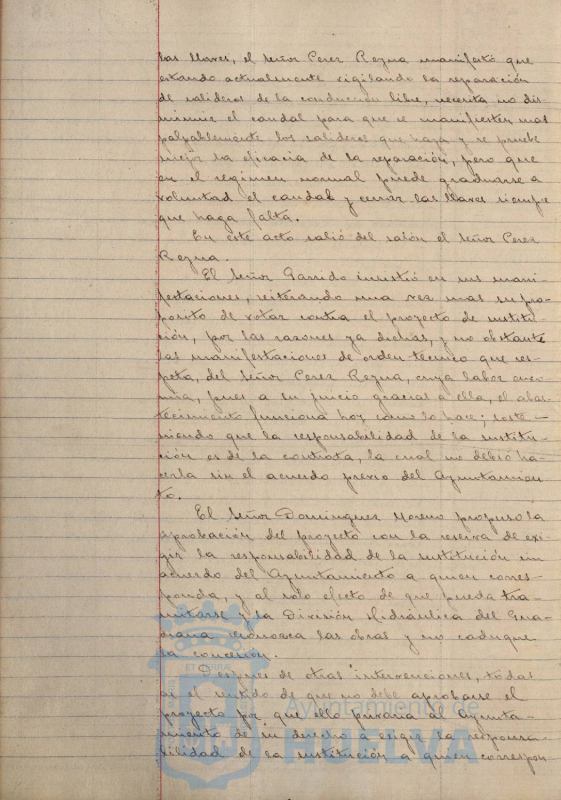 las llaves, el Señor Perez Rozna manifestó que
estando actualmente vigilando la reparación
de salideros de la conducción libre, necesita no dis-
minuir el caudal para que se manifiesten mas
palpablemente los salideros que haya y se pruebe
mejor la eficacia de la reparación, pero que
en el regimen normal puede graduarse a
voluntad el caudal y cerrar las llaves siempre
que haga falta.
En este acto salió del salón el Señor Perez
Rozna.
El Señor Garrido insistió en sus mani-
festaciones, reiterando una vez mas su pro-
posito de votar contra el proyecto de sustitu-
ción, por las razones ya dichas, y no obstante
las manifestaciones de orden tecnico que res-
peta, del Señor Perez Rozna, cuya labor
pues a su juicio gracias a ella, el abas-
tecimiento funciona hoy como lo hace; soste-
niendo que la responsabilidad de la sustitu-
ción es de la contrata, la cual no debió ha-
cerla sin el acuerdo previo del Ayuntamien-
to.
El Señor Dominguez Moreno propuso la
aprobación del proyecto con la reserva de exi-
gir la responsabilidad de la sustitución sin
acuerdo del Ayuntamiento a quien corres-
ponda, y al solo efecto de que pueda tra-
mitarse y la División Hidráulica del Gua-
diana reconozca las obras y no caduque
la concesión.
Despues de otras intervenciones, todas
en el sentido de que no debe aprobarse el
proyecto por que ello privaria al Ayunta-
miento de su derecho a exigir la responsa-
bilidad de la sustitución a quien correspon-
Ayuntamiento de
HUELVA